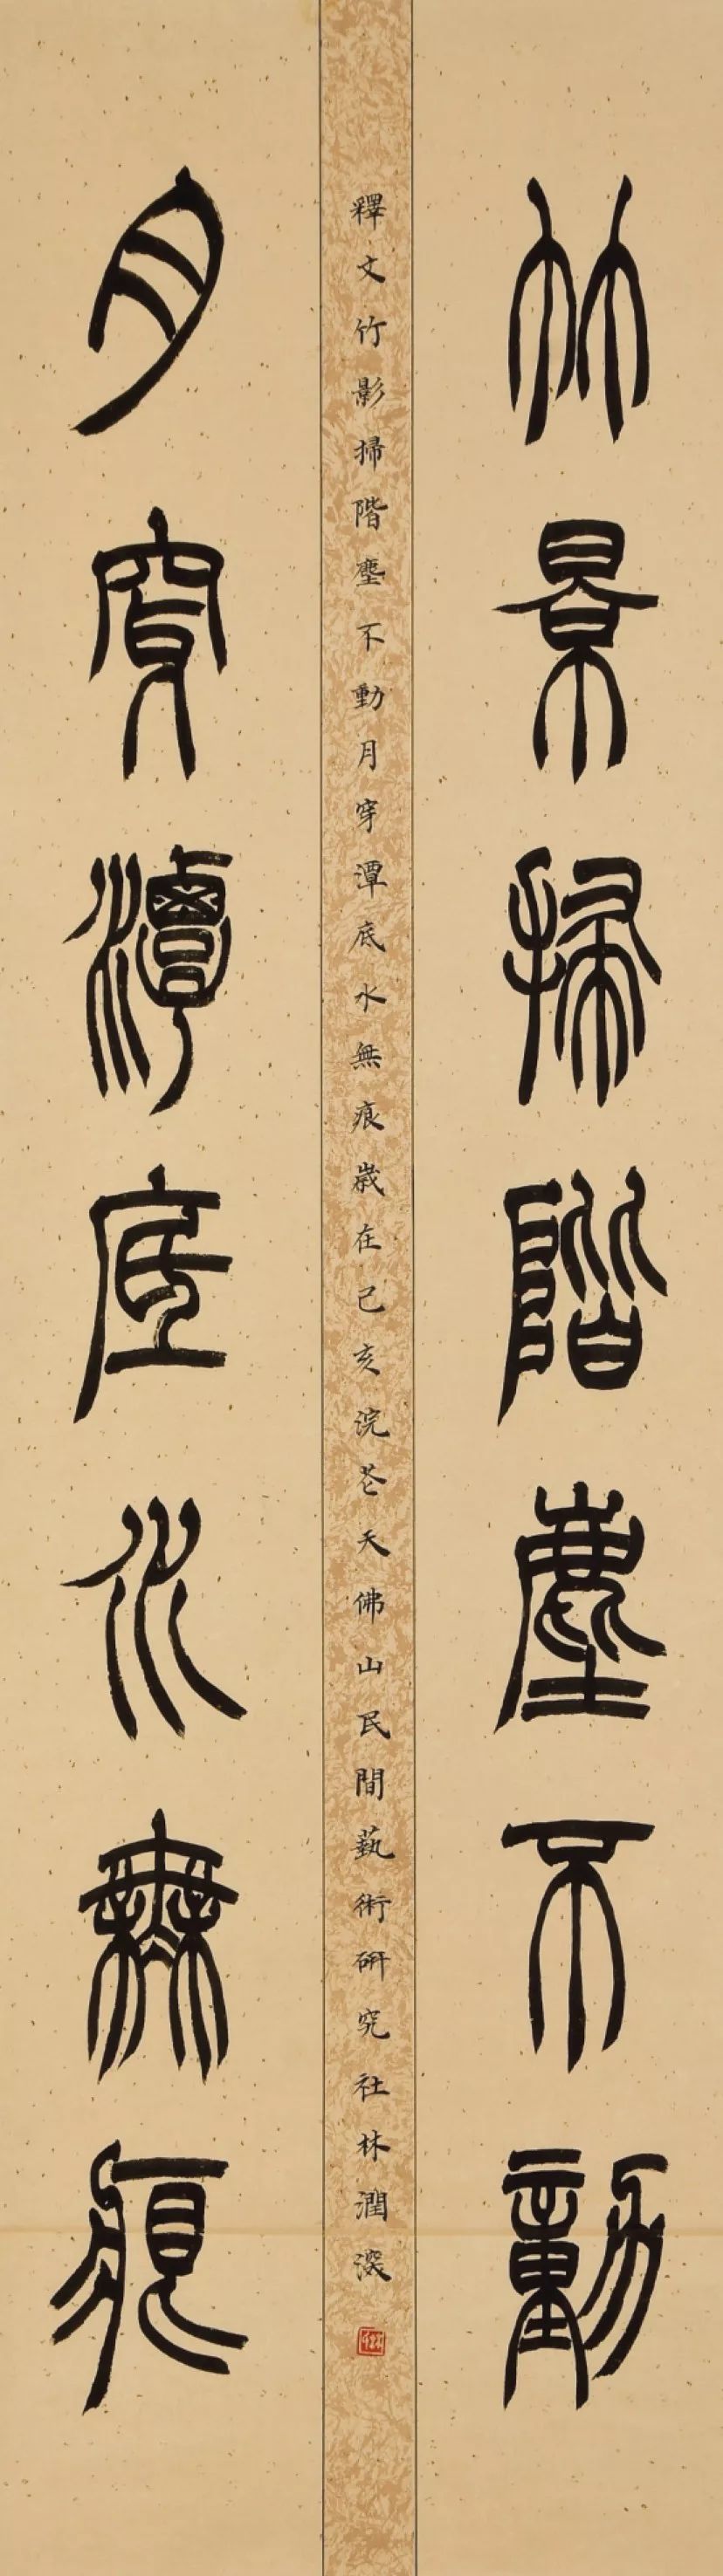 竹景掃階塵不動
釋文竹影掃階塵不動月穿潭底水無痕歲在己亥浣花天佛山民間藝術研究社林潤深
月穿潭底水無痕